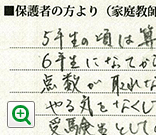 ■保護者の方より（家庭教師
5年生の頃は算
6年生になてか
点数が取れな
やる気をなくし
受験食当として